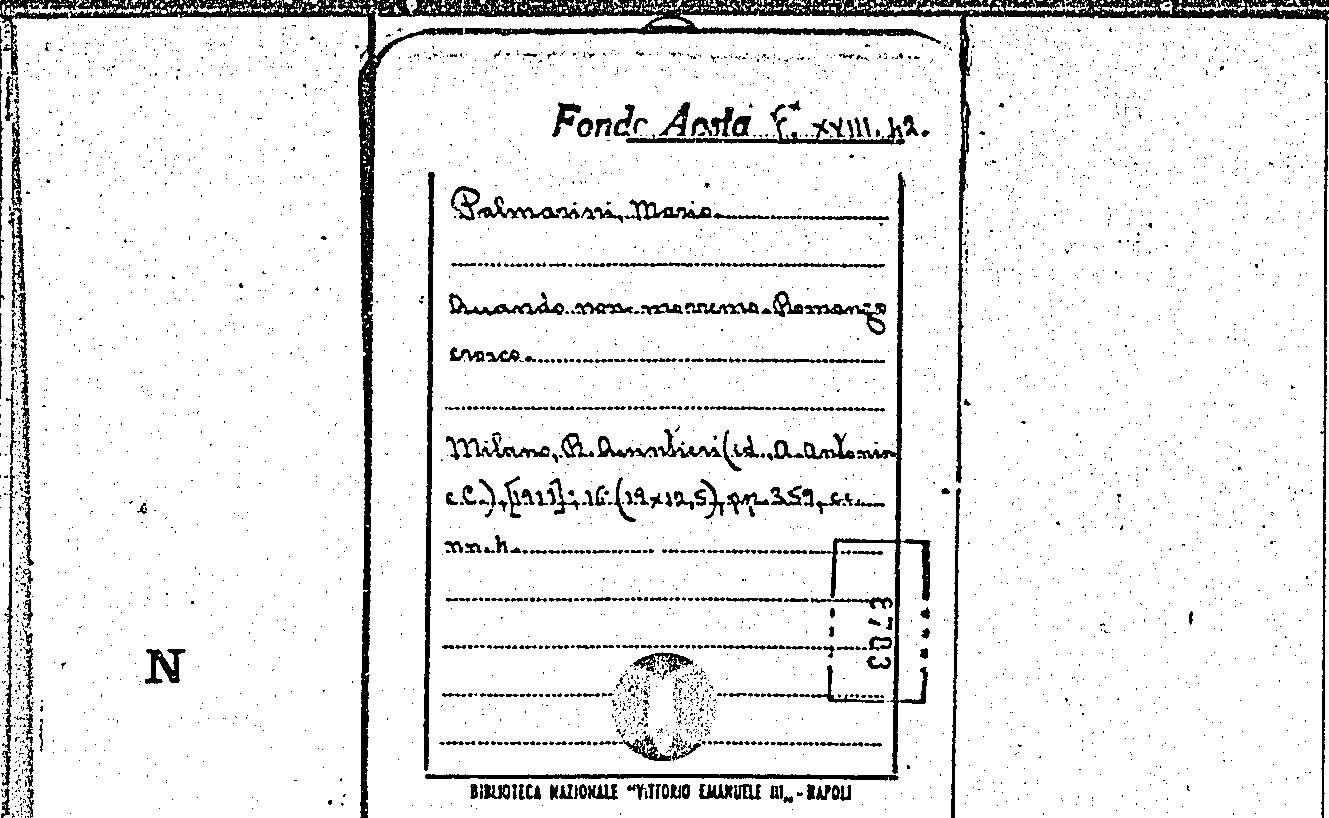 Fondo Aosta F.* XXIII. 42.
Palmarini, Mario.
Quando non morremo. Romanzo
eroico.
Milano, R. Quintieri (ed., A. Antonin
e C.), [1911]; 16° (19x12,5), pp. 359, cc.
nn. 4.
3703
N
BIBLIOTECA NAZIONALE "VITTORIO EMANUELE III„ - NAPOLI